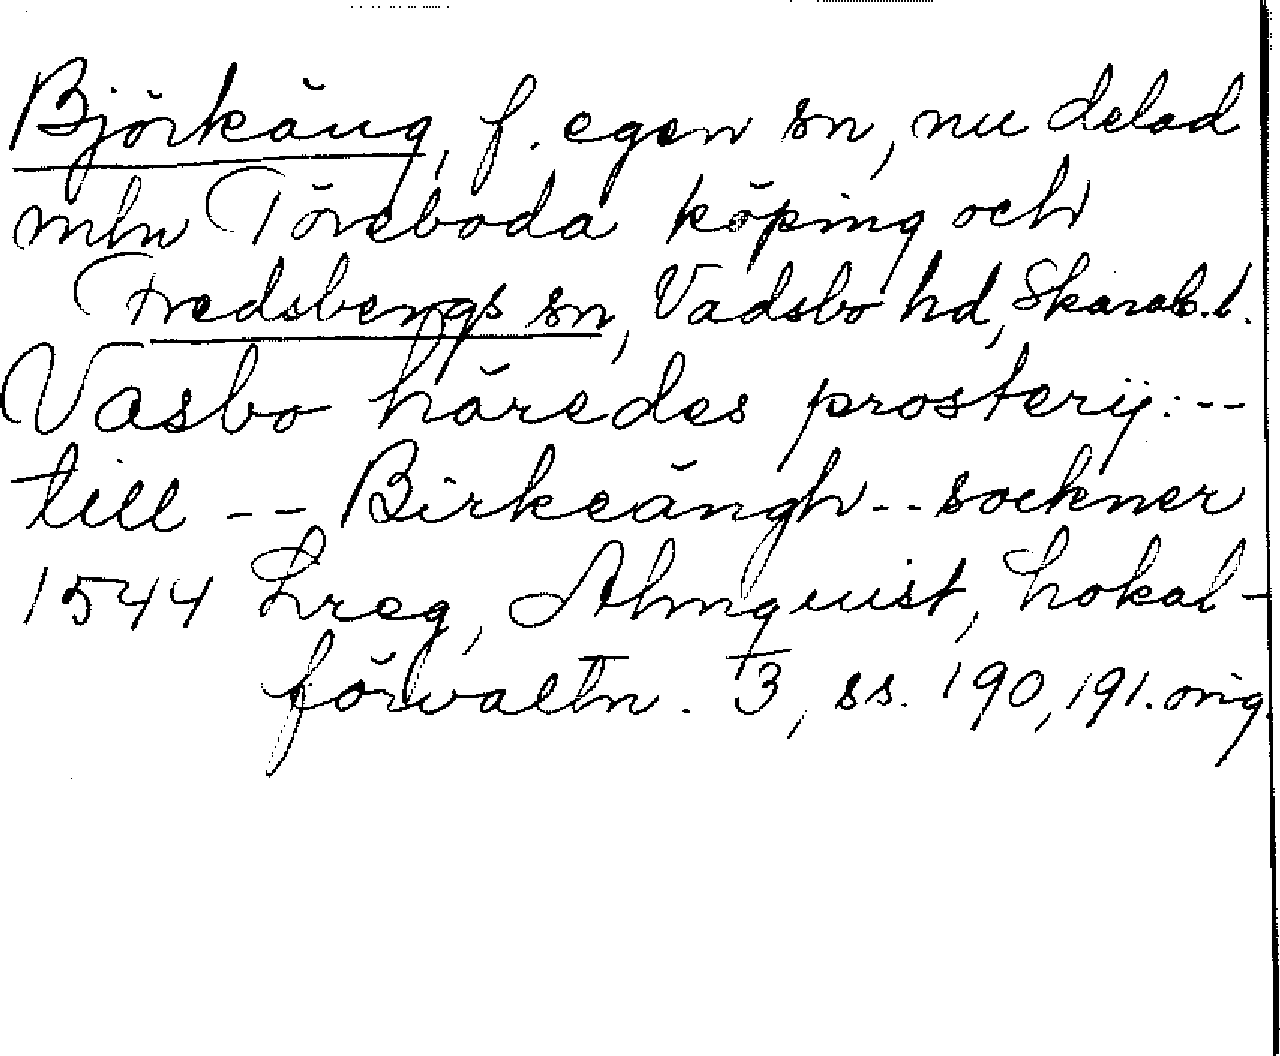 Björkäng, f. egen sn, nu delad
mln Töreboda köping och
Fredsbergs sn, Vadsbo hd, Skarab. l.
Vasbo häredes prosterij: --
till -- Birkeängh -- sockner
1544 Lreg, Almquist, Lokal-
förvaltn. 3, ss. 190, 191. orig.